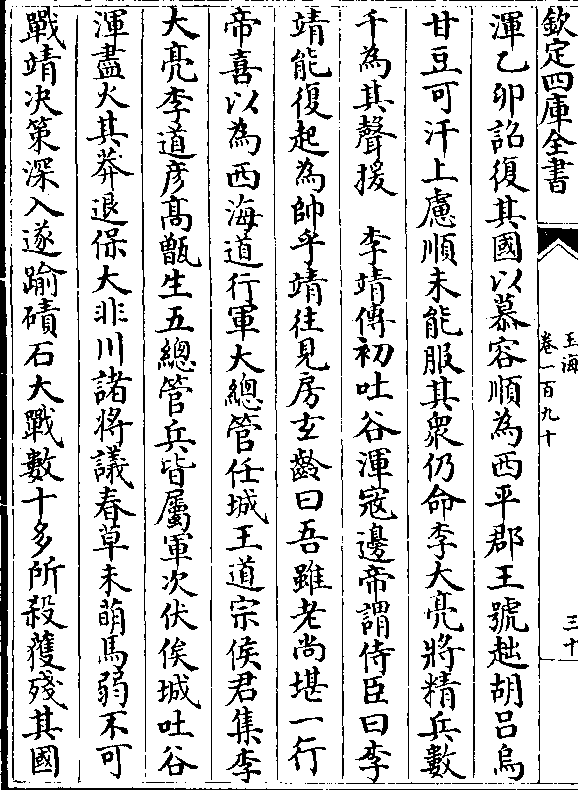 欽定四庫全書
玉海
卷一百九十
三十
渾乙卯詔復其國以慕容順為西平郡王號趉胡吕烏
甘豆可汗上慮順未能服其衆仍命李大亮將精兵數
千為其聲援　李靖傳初吐谷渾寇邊帝謂侍臣曰李
靖能復起為帥乎靖往見房玄齡曰吾雖老尚堪一行
帝喜以為西海道行軍大總管任城王道宗侯君集李
大亮李道彦髙甑生五總管兵皆屬軍次伏俟城吐谷
渾盡火其莽退保大非川諸將議春草未萌馬弱不可
戰靖决策深入遂踰磧石大戰數十多所殺獲殘其國